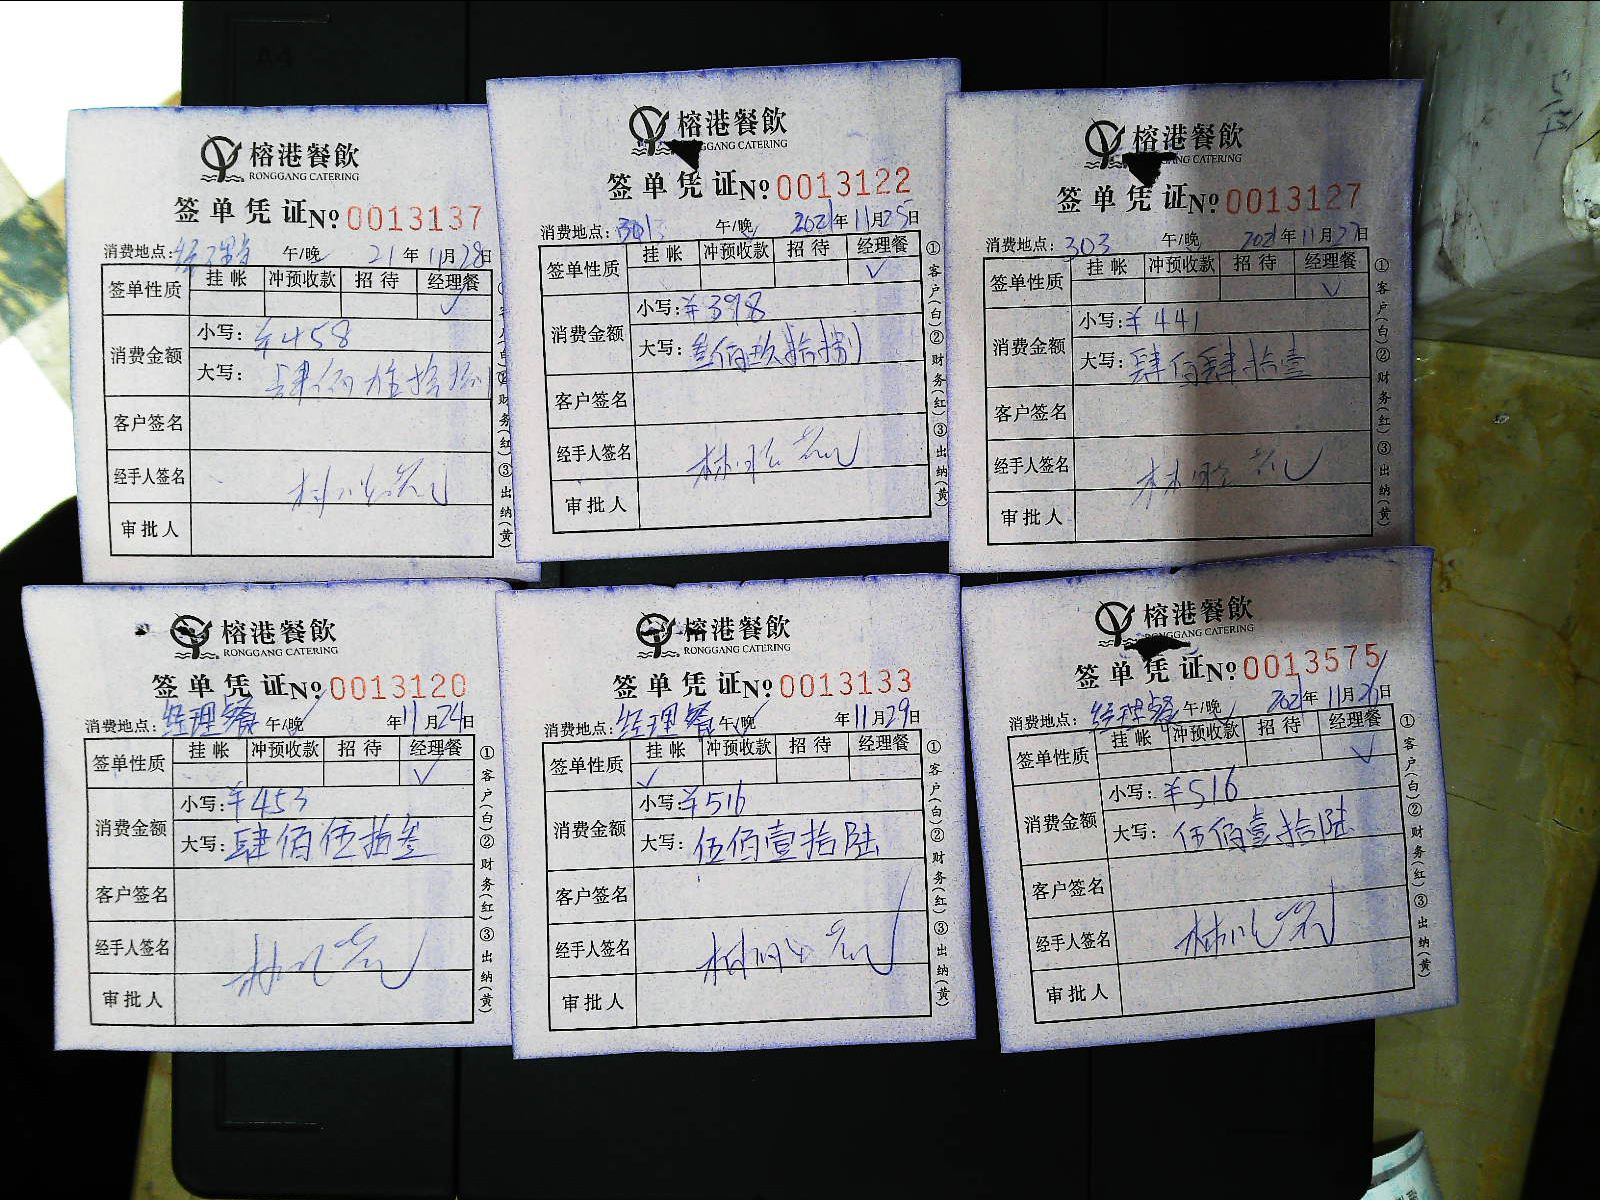 榕港餐飲
RONGGANG CATERING
签单凭证№0013137
消费地点: 午/晚 21年11月28日
签单性质 挂帐 冲预收款 招待 经理餐
√
消费金额 小写:¥458
大写:肆佰伍拾捌
客户签名
经手人签名
审批人
榕港餐飲
GANG CATERING
签单凭证№0013122
消费地点:303 午/晚 2021年11月25日
签单性质 挂帐 冲预收款 招待 经理餐
√
消费金额 小写:¥398
大写:叁佰玖拾捌
客户签名
经手人签名
审批人
①客户(白)②财务(红)③出纳(黄)
榕港餐飲
NG CATERING
签单凭证№0013127
消费地点:303 午/晚 2021年11月27日
签单性质 挂帐 冲预收款 招待 经理餐
√
消费金额 小写:¥441
大写:肆佰肆拾壹
客户签名
经手人签名
审批人
①客户(白)②财务(红)③出纳(黄)
榕港餐飲
RONGGANG CATERING
签单凭证№0013120
消费地点:经理餐 午/晚√ 年11月24日
签单性质 挂帐 冲预收款 招待 经理餐
√
消费金额 小写:¥453
大写:肆佰伍拾叁
客户签名
经手人签名
审批人
①客户(白)②财务(红)③出纳(黄)
榕港餐飲
RONGGANG CATERING
签单凭证№0013133
消费地点:经理餐 午/晚√ 年11月29日
签单性质 挂帐 冲预收款 招待 经理餐
√
消费金额 小写:¥516
大写:伍佰壹拾陆
客户签名
经手人签名
审批人
①客户(白)②财务(红)③出纳(黄)
榕港餐飲
RONGGANG CATERING
签单凭证№0013575
消费地点:经理餐 午/晚√ 2021年11月日
签单性质 挂帐 冲预收款 招待 经理餐
√
消费金额 小写:¥516
大写:伍佰壹拾陆
客户签名
经手人签名
审批人
①客户(白)②财务(红)③出纳(黄)